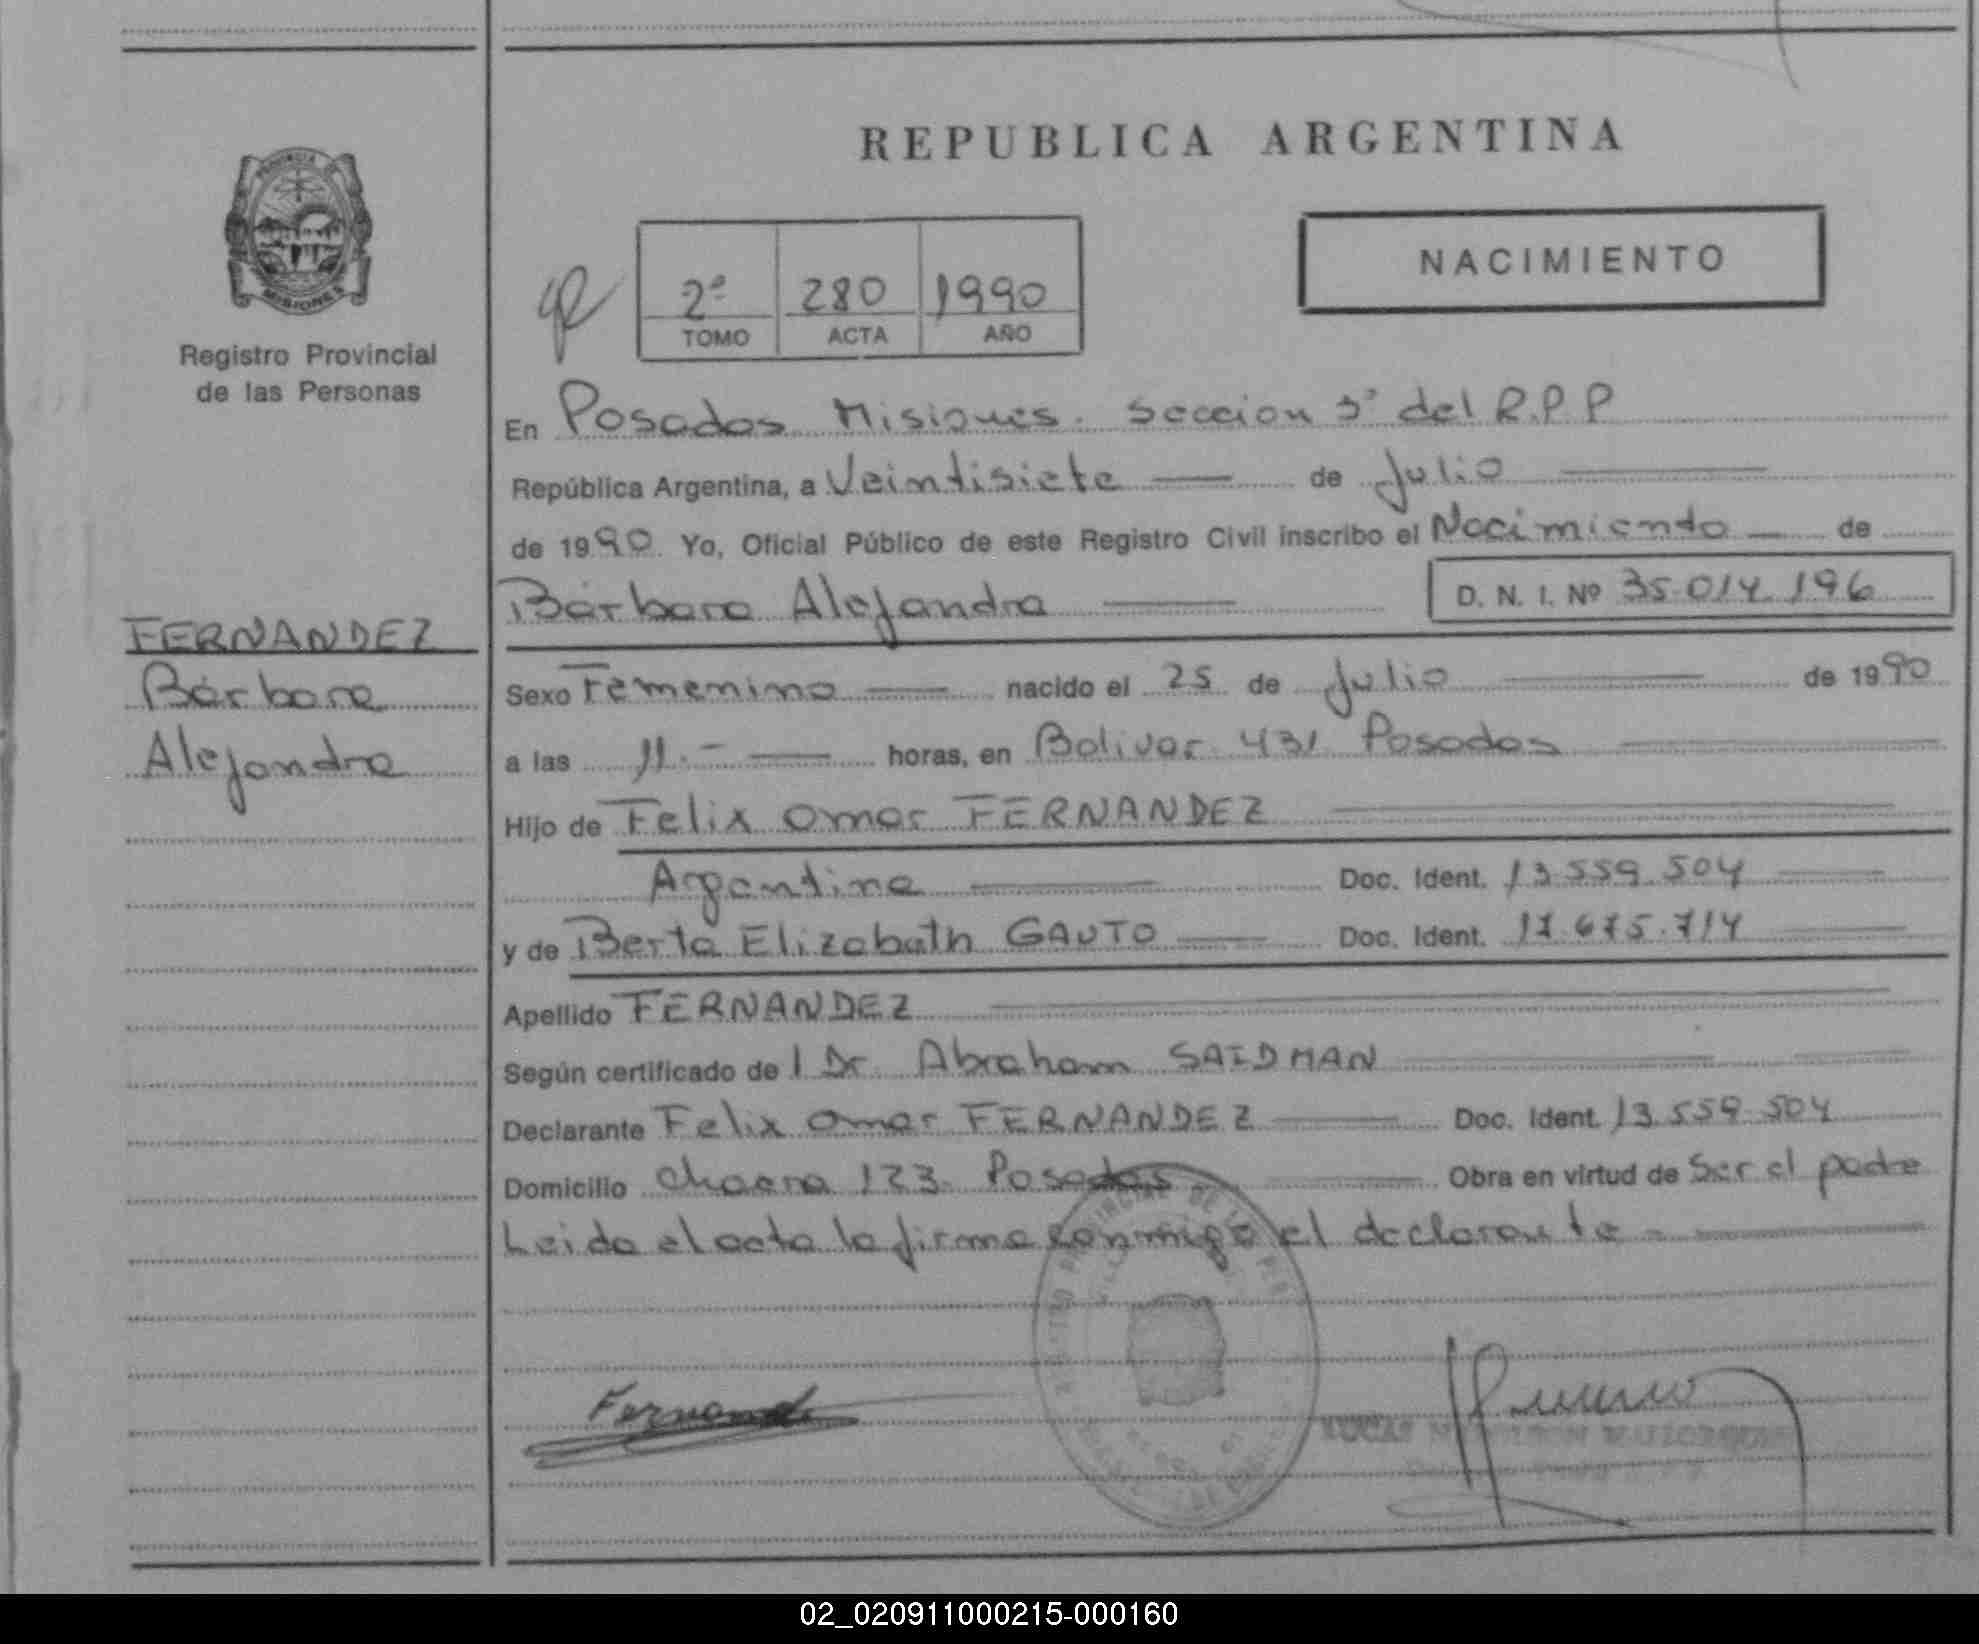 REPUBLICA ARGENTINA
NACIMIENTO
PROVINCIA
MISIONES
Registro Provincial
de las Personas
2º 280 1990
TOMO ACTA AÑO
En Posadas Misiones. Seccion 3ª del R.P.P
República Argentina, a Veintisiete de Julio
de 1990. Yo, Oficial Público de este Registro Civil inscribo el Nacimiento de
Bárbara Alejandra D. N. I. Nº 35.014.196
FERNANDEZ
Bárbara
Alejandra
Sexo Femenino nacido el 25 de Julio de 1990
a las 11.- horas, en Bolivar 431 Posadas
Hijo de Felix Omar FERNANDEZ
Argentina Doc. Ident. 13.559.504
y de Berta Elizabeth GAUTO Doc. Ident. 17.675.714
Apellido FERNANDEZ
Según certificado de l Dr. Abraham SAIDMAN
Declarante Felix Omar FERNANDEZ Doc. Ident. 13.559.504
Domicilio Chacra 123 Posadas Obra en virtud de Ser el padre
Leida el acta la firma conmigo el declarante
Fernand
LUCAS
02_020911000215-000160